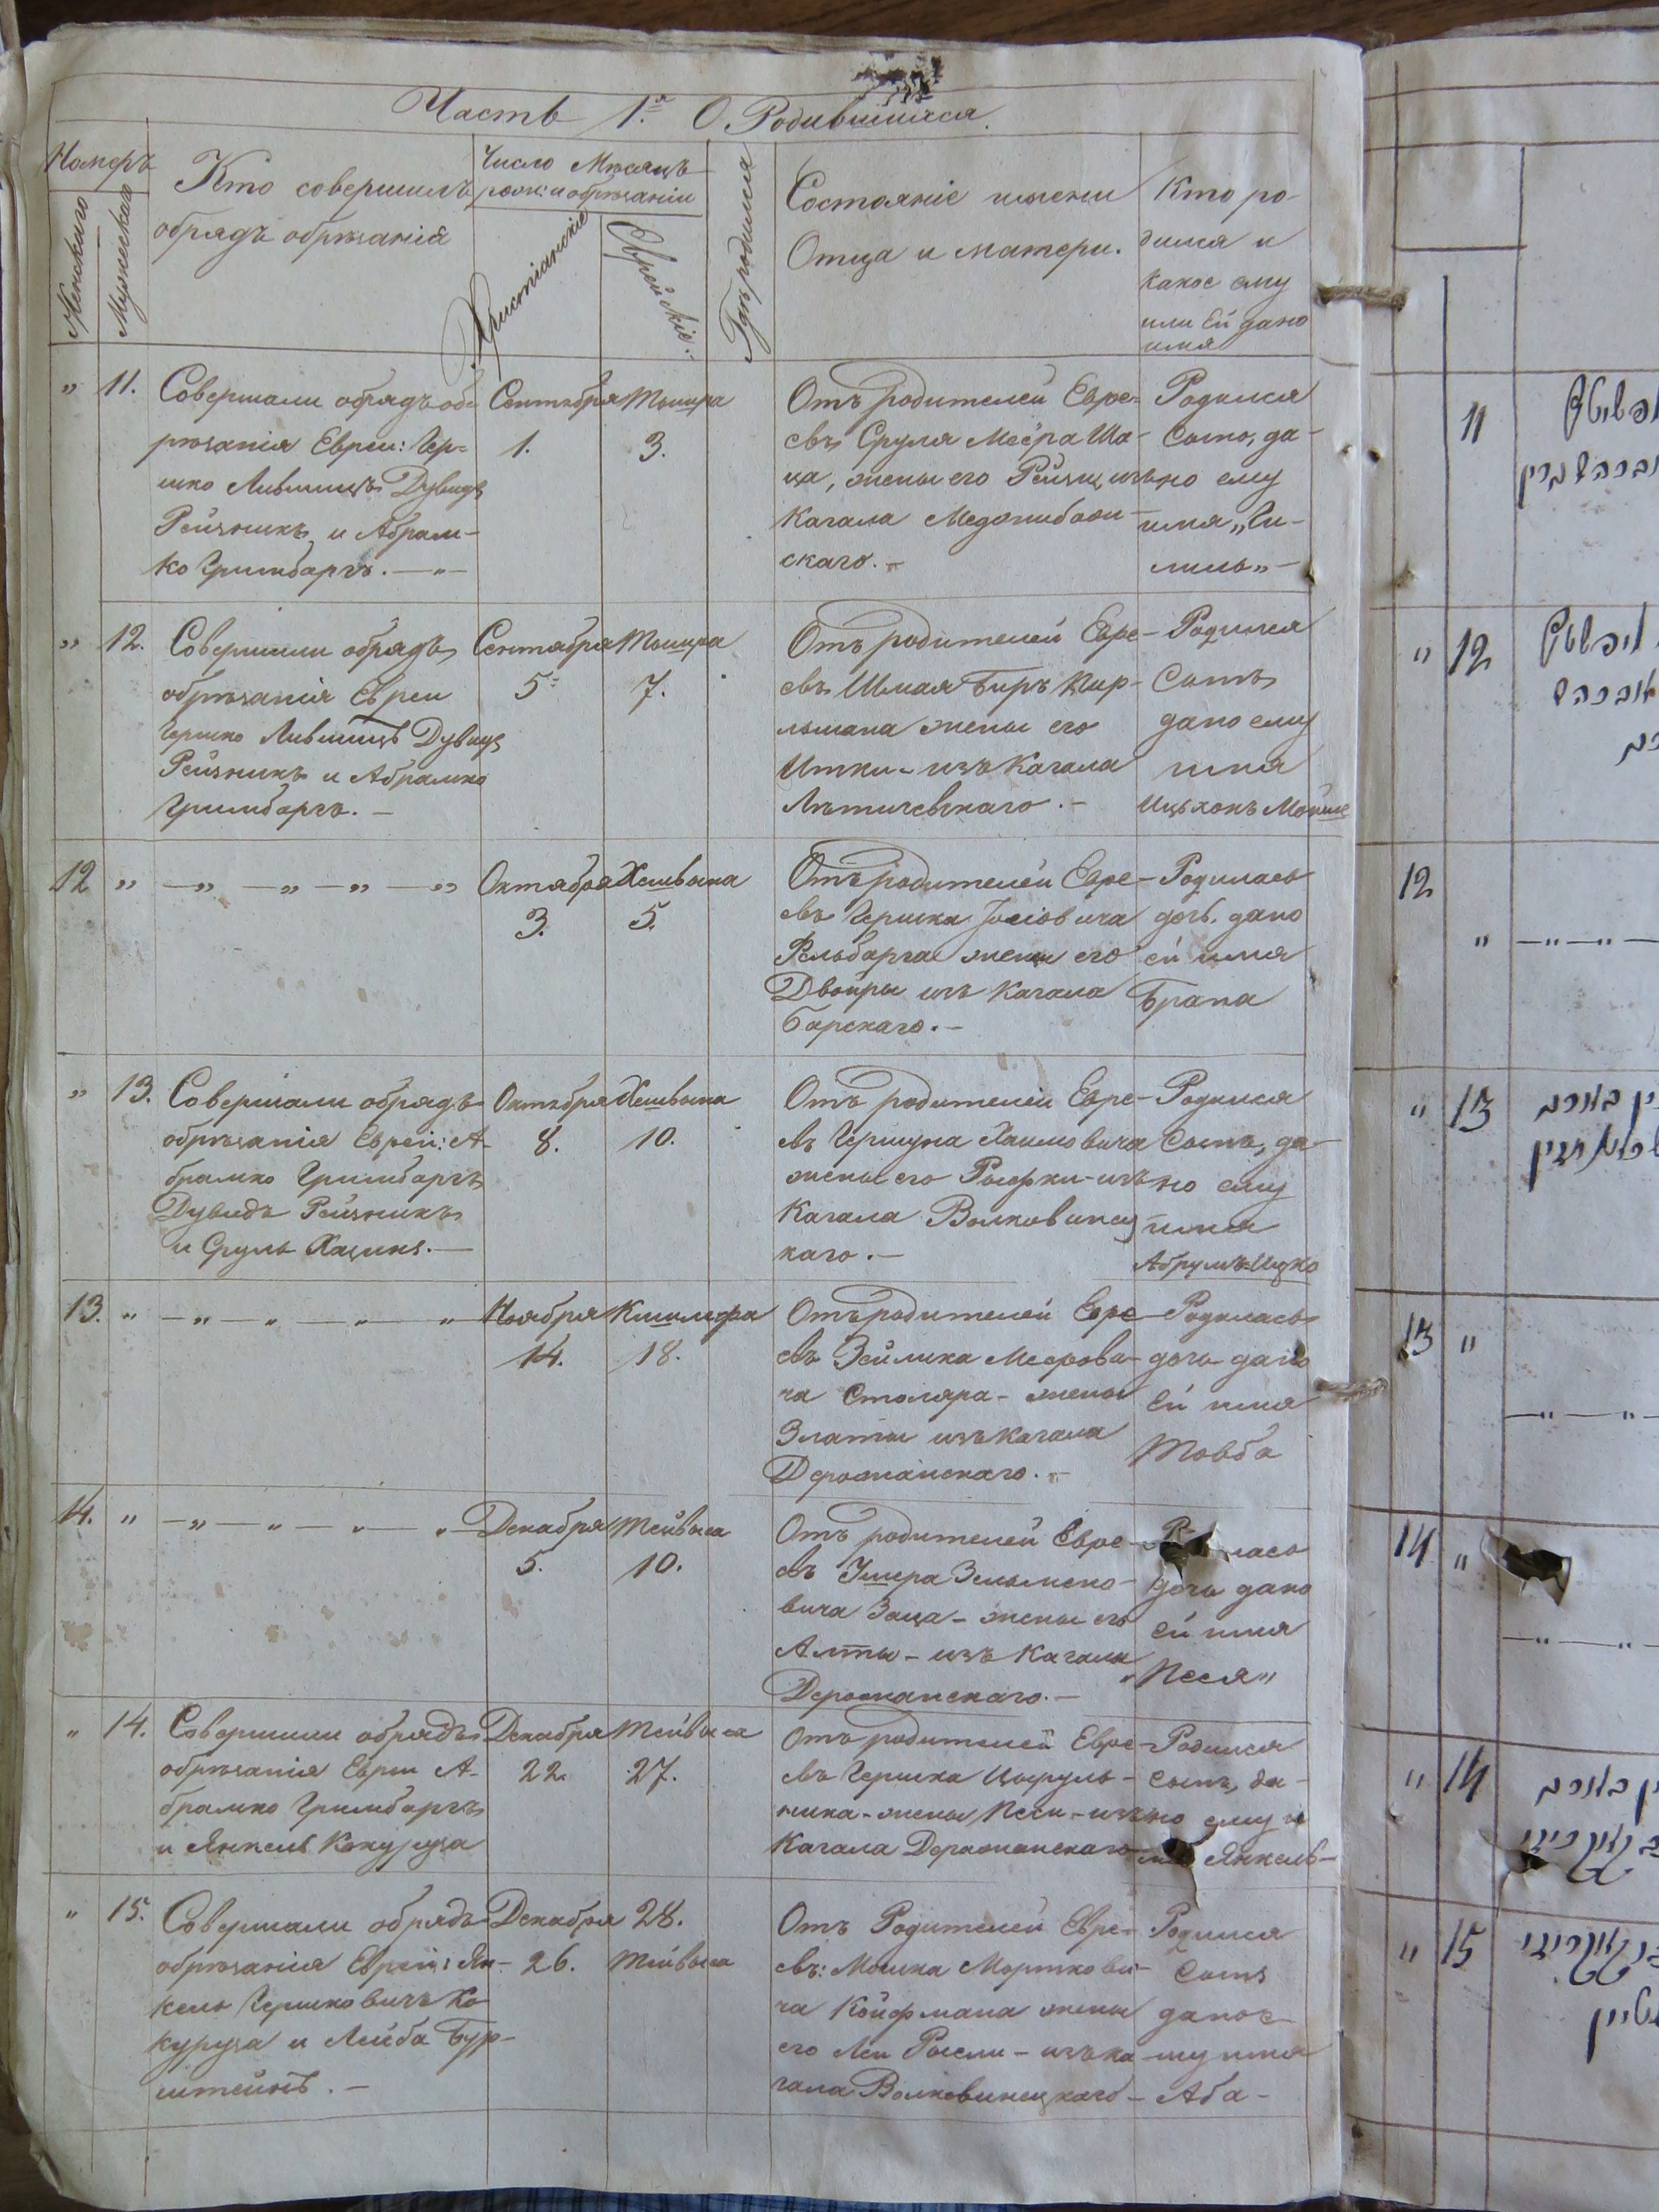 Часть 1.я О Родившихся.
Номеръ
Женскаго
Мужескаго
Кто совершилъ
обрядъ обрѣзанія
Число Мѣсяцъ
рожд: и обрѣзаніи
Христіанскіе
Еврейскіе.
Гдѣ родился
Состояніе имени
Отца и матери.
Кто ро-
дился и
какое ему
или Ей дано
имя
„ 11. Совершали обрядъ об-
рѣзанія Евреи: Гер=
шко Лившицъ Дувидъ
Рейзникъ и Абрам-
ко Гримбаргъ. — „ —
Сентября
1.
Тышра
3.
Отъ родителей Евре=
евъ Сруля Меера Ша-
ца, жены его Рейзи изъ
Кагала Меджибожи-
скаго. —
Родился
Сынъ, да-
но ему
имя „Ги-
лель„ —
„ 12. Совершили обрядъ
обрѣзанія Евреи
Гершко Лившицъ Дувидъ
Рейзникъ и Абрамко
Гримбаргъ. —
Сентября
5.
Тышра
7.
Отъ родителей Евре-
евъ Шмая Биръ Кир-
льмана жены его
Итки - изъ Кагала
Лѣтичевскаго. —
Родился
Сынъ
дано ему
имя
Ицьхокъ Мойше
12 „ — „ — „ — „ — „
Октября
3.
Хешвына
5.
Отъ родителей Евре-
евъ Гершка Іосіовича
Фельбарга жены его
Двойры изъ Кагала
Барскаго. —
Родилась
дочь, дано
ей имя
Брана
„ 13. Совершали обрядъ
обрѣзанія Евреи: А-
брамко Гримбаргъ
Дувидъ Рейзникъ
и Сруль Хацинъ. —
Октября
8.
Хешвына
10.
Отъ родителей Евре-
евъ Гершуна Хаимовича
жены его Рыфки - изъ
Кагала Волковинец
каго. —
Родился
Сынъ, да-
но ему
имя
Абрумъ-Ицко
13. „ — „ — „ — „ — „
Ноября
14.
Кишлефа
18.
Отъ родителей Евре
евъ Зейлика Меерови-
ча Столяра - жены
Златы изъ Кагала
Деражнанскаго. —
Родилась
дочь дано
Ей имя
Товба
14. „ — „ — „ — „ — „
Декабря
5.
Тейвыса
10.
Отъ родителей Евре-
евъ Ушера Зельмено-
вича Заца - жены его
Алты - изъ Кагала
Деражнанскаго. —
лась
дочь дано
ей имя
„Песя„
„ 14. Совершили обрядъ
обрѣзанія Евреи А-
брамко Гримбаргъ
и Янкель Кокуруза
Декабря
22.
Тейвыса
27.
Отъ родителей Евре-
евъ Гершка Цыруль-
ника - жены Песи - изъ
Кагала Деражнанскаго
Родился
Сынъ, да-
но ему и
Янкель —
„ 15. Совершали обрядъ
обрѣзанія Евреи: Ян-
кель Гершковичъ Ко
куруза и Лейба Бур-
штейнъ. —
Декабря
26.
28.
Тейвыса
Отъ Родителей Евре-
евъ: Мошка Морткови-
ча Койфмана жены
его Леи Рысли - изъ ка-
гала Волковинецкаго -
Родился
Сынъ
дано е-
му имя
Аба -
11
„ 12
12
„ — „ — „ —
„ 13
13 „
— „ — „ —
14 „
— „ — „ —
„ 14
„ 15